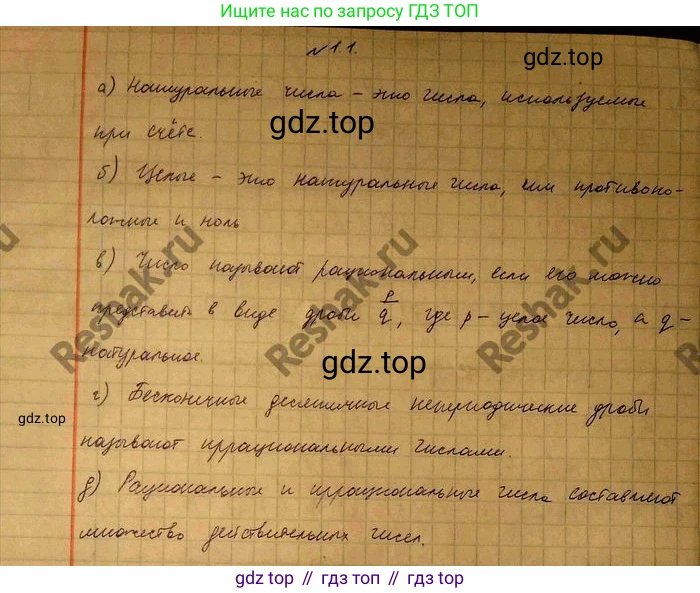 Ищите нас по запросу ГДЗ ТОП
№1.1.
gdz.top
а) Натуральные числа – это числа, используемые
при счёте.
gdz.top
б) Целые – это натуральные числа, им противопо-
ложные и ноль
в) Число называют рациональным, если его можно
представить в виде дроби p/q, где p – целое число, а q –
натуральное.
Reshak.ru
Reshak.ru
Reshak.ru
gdz.top
г) Бесконечные десятичные непериодические дроби
gdz.top
называют иррациональными числами.
д) Рациональные и иррациональные числа составляют
множество действительных чисел.
gdz.top // гдз топ // gdz.top